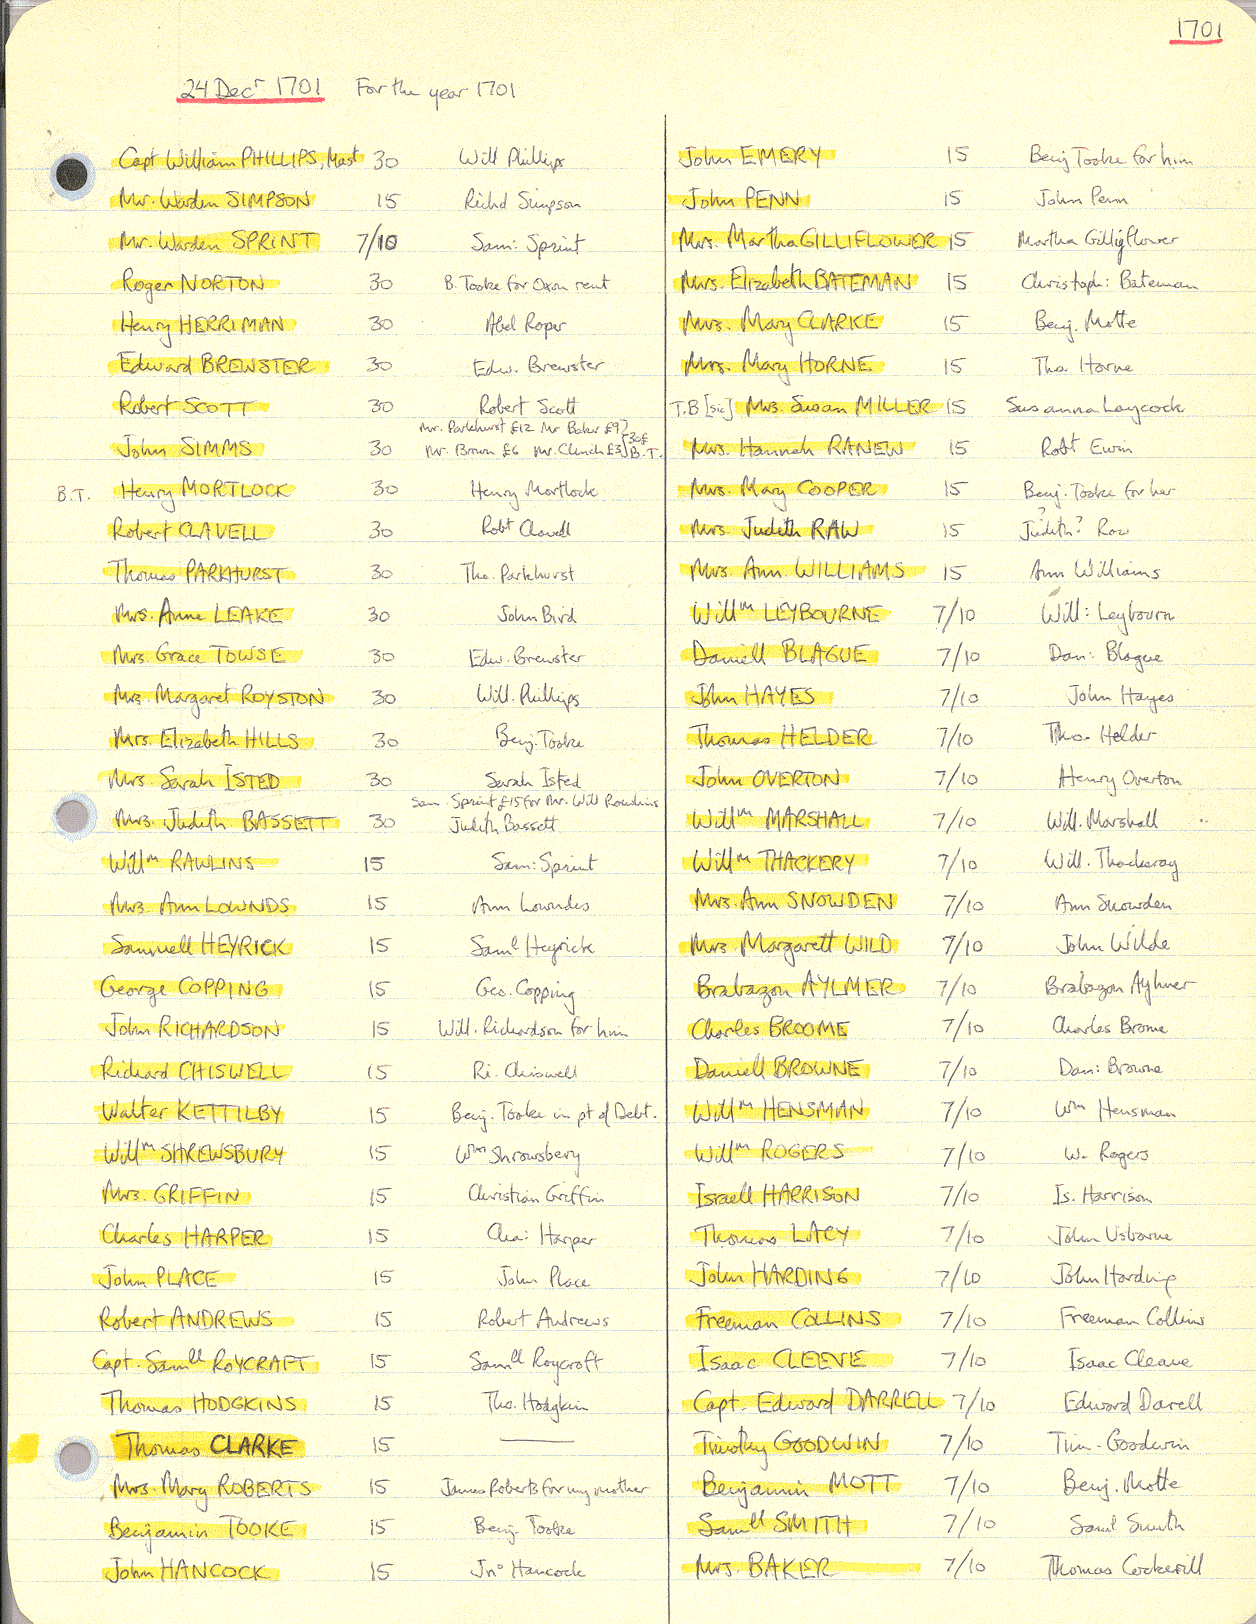 1701
24 Decr 1701 For the year 1701
Capt William PHILLIPS, Mast 30 Will Phillips
Mr. Warden SIMPSON 15 Richd Simpson
Mr. Warden SPRINT 7/10 Sam: Sprint
Roger NORTON 30 B. Tooke for Oxon rent
Henry HERRIMAN 30 Abel Roper
Edward BREWSTER 30 Edw. Brewster
Robert SCOTT 30 Robert Scott
Mr. Parkhurst £12 Mr Baker £9
John SIMMS 30 Mr. Brown £6 Mr. Clench £3 30£ B.T.
B.T. Henry MORTLOCK 30 Henry Mortlock
Robert CLAVELL 30 Robt Clavell
Thomas PARKHURST 30 Tho. Parkhurst
Mrs. Anne LEAKE 30 John Bird
Mrs. Grace TOWSE 30 Edw. Brewster
Mrs. Margaret ROYSTON 30 Will. Phillips
Mrs. Elizabeth HILLS 30 Benj. Tooke
Mrs. Sarah ISTED 30 Sarah Isted
Sam. Sprint £15 for Mr. Will Rawlins
Mrs. Judith BASSETT 30 Judith Bassett
Willm RAWLINS 15 Sam: Sprint
Mrs. Ann LOWNDS 15 Ann Lowndes
Samuell HEYRICK 15 Saml Heyrick
George COPPING 15 Geo. Copping
John RICHARDSON 15 Will. Richardson for him
Richard CHISWELL 15 Ri. Chiswell
Walter KETTILBY 15 Benj. Tooke in pt of Debt.
Willm SHREWSBURY 15 Wm Shrowsbery
Mrs. GRIFFIN 15 Christian Griffin
Charles HARPER 15 Cha: Harper
John PLACE 15 John Place
Robert ANDREWS 15 Robert Andrews
Capt. Samll ROYCRAFT 15 Samll Roycroft
Thomas HODGKINS 15 Tho. Hodgkin
Thomas CLARKE 15 ———
Mrs. Mary ROBERTS 15 James Roberts for my mother
Benjamin TOOKE 15 Benj. Tooke
John HANCOCK 15 Jno Hancock
John EMERY 15 Benj Tooke for him
John PENN 15 John Penn
Mrs. Martha GILLIFLOWER 15 Martha Gilliflower
Mrs. Elizabeth BATEMAN 15 Christoph: Bateman
Mrs. Mary CLARKE 15 Benj. Motte
Mrs. Mary HORNE 15 Tho. Horne
T.B [sic] Mrs. Susan MILLER 15 Susanna Laycock
Mrs. Hannah RANEW 15 Robt Ewin
Mrs. Mary COOPER 15 Benj. Tooke for her
Mrs. Judith RAW 15 Judith? Raw
Mrs. Ann. WILLIAMS 15 Ann Williams
Willm LEYBOURNE 7/10 Will: Leybourn
Daniell BLAGUE 7/10 Dan: Blague
John HAYES 7/10 John Hayes
Thomas HELDER 7/10 Tho. Helder
John OVERTON 7/10 Henry Overton
Willm MARSHALL 7/10 Will. Marshall
Willm THACKERY 7/10 Will. Thackeray
Mrs. Ann SNOWDEN 7/10 Ann Snowden
Mrs Margarett WILD 7/10 John Wilde
Brabazon AYLMER 7/10 Brabazon Aylmer
Charles BROOME 7/10 Charles Brome
Daniell BROWNE 7/10 Dan: Browne
Willm HENSMAN 7/10 Wm Hensman
Willm ROGERS 7/10 W. Rogers
Israell HARRISON 7/10 Is. Harrison
Thomas LACY 7/10 John Usborne
John HARDING 7/10 John Harding
Freeman COLLINS 7/10 Freeman Collins
Isaac CLEEVE 7/10 Isaac Cleave
Capt. Edward DARRELL 7/10 Edward Darell
Timothy GOODWIN 7/10 Tim. Goodwin
Benjamin MOTT 7/10 Benj. Motte
Samll SMITH 7/10 Saml Smith
Mrs. BAKER 7/10 Thomas Cockerill